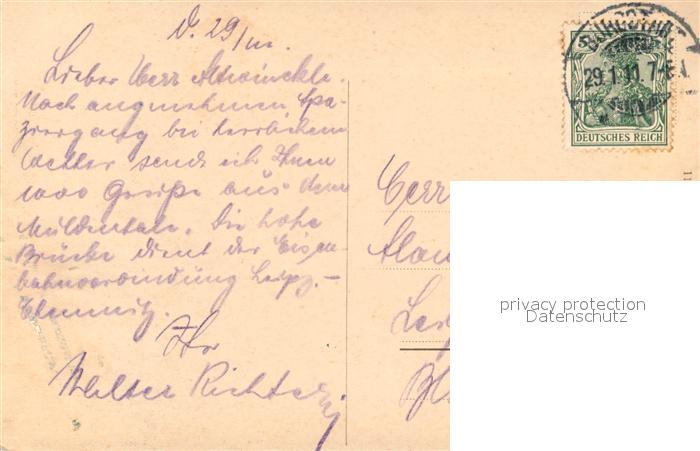 d. 29/III.
Lieber Herr
Nach angenehmen Spa-
ziergang bei herrlichem
Wetter sende ich Ihnen
1000 Grüße aus dem
Muldentale. Die hohe
Brücke dient der Eisen-
bahnverbindung Leipz.-
Chemnitz.
Ihr
Walter Richter
5
29.1.11.7-8
DEUTSCHES REICH
Herr
privacy protection
Datenschutz